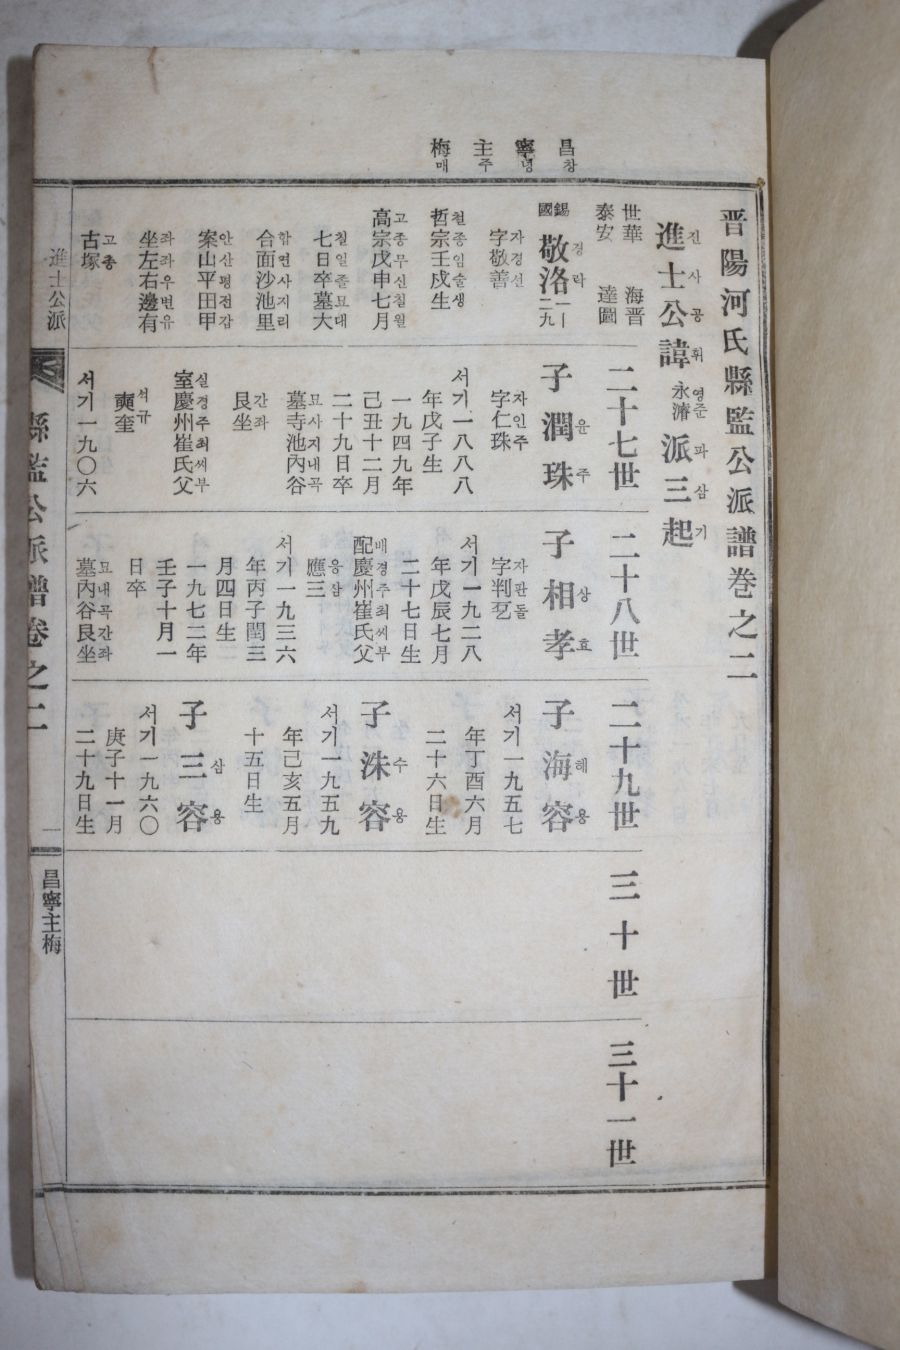 昌창 寧녕 主주 梅매
晋陽河氏縣監公派譜巻之二
進진士사公공諱휘永영濬준派파三삼起기
世華 海晋
泰安 達圖
錫國 敬경洛락 一一二九
字자敬경善선
哲철宗종壬임戍술生생
高고宗종戊무申신七칠月월
七칠日일卒졸墓묘大대
合합面면沙사池지里리
案안山산平평田전甲갑
坐좌左좌右우邊변有유
古고塚총
二十七世
子 潤윤珠주
字자仁인珠주
서기一八八八
年戊子生
一九四九年
己丑十二月
二十九日卒
墓묘寺사池지內내谷곡
艮간坐좌
室실慶경州주崔최氏씨父부
奭석奎규
서기一九〇六
二十八世
子 相상孝효
字자判판乭돌
서기一九二八
年戊辰七月
二十七日生
配배慶경州주崔최氏씨父부
應응三삼
서기一九三六
年丙子閏三
月四日生
一九七二年
壬子十月一
日卒
墓묘內내谷곡艮간坐좌
二十九世
子 海해容용
서기一九五七
年丁酉六月
二十六日生
子 洙수容용
서기一九五九
年己亥五月
十五日生
子 三삼容용
서기一九六〇
庚子十一月
二十九日生
三十世
三十一世
進士公派
縣監公派譜卷之二
一
昌寧主梅